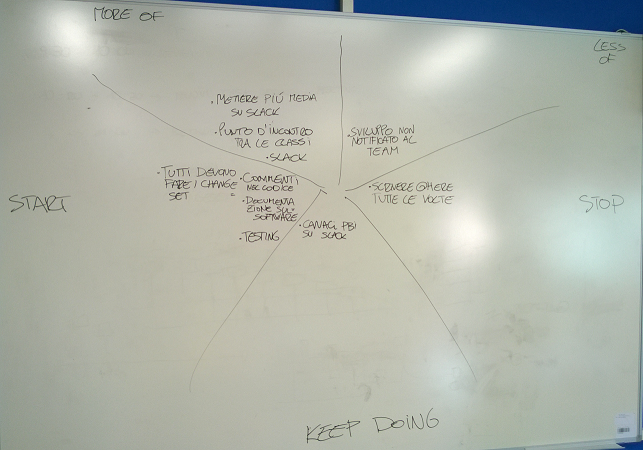 MORE OF
LESS
OF
• METTERE PIÚ MEDIA
SU SLACK
• PUNTO D'INCONTRO
TRA LE CLASSI
• SLACK
• SVILUPPO NON
NOTIFICATO AL
TEAM
• TUTTI DEVONO
FARE I CHANGE
SET
• COMMENTI
NEL CODICE
• DOCUMENTA
ZIONE SUL
SOFTWARE
• TESTING
• SCRIVERE
TUTTE LE VOLTE
START
STOP
• CANALI PBI
SU SLACK
KEEP DOING